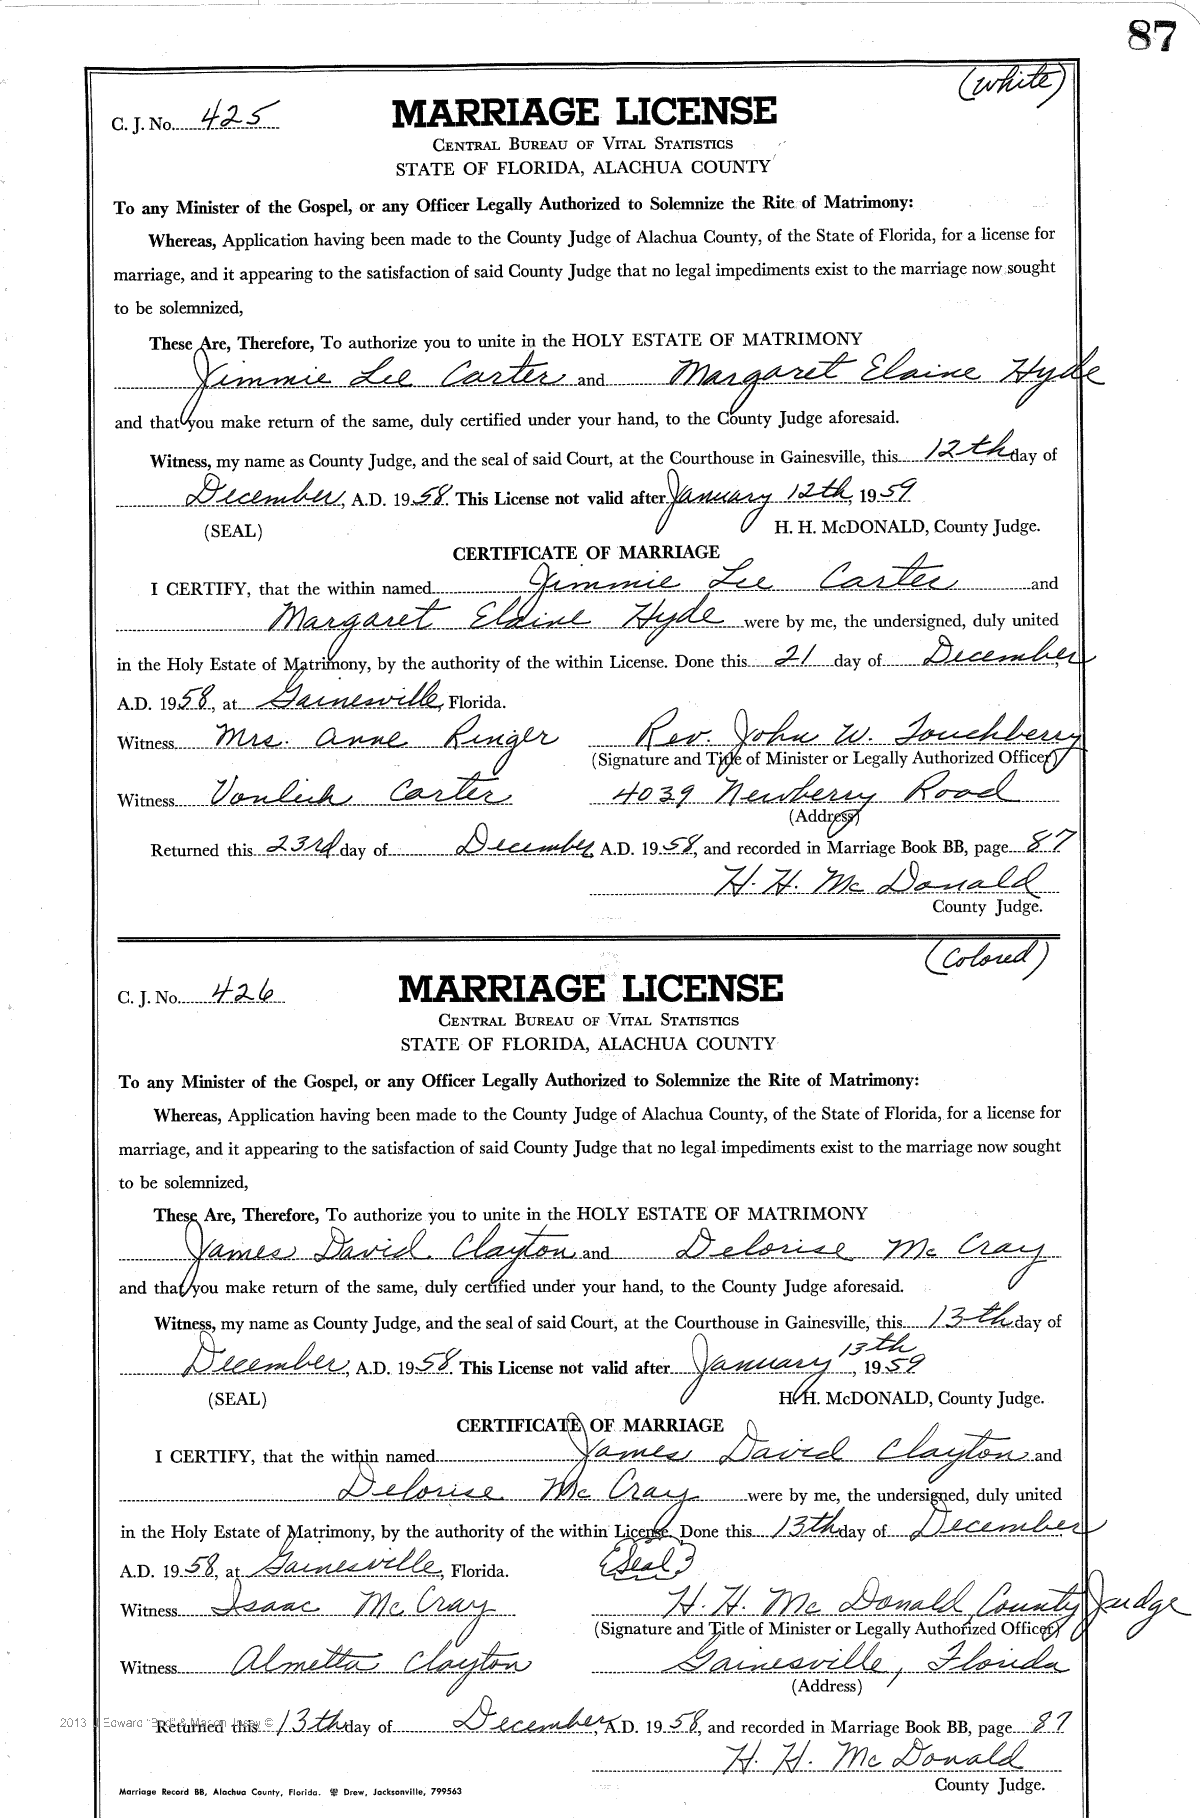 87
(White)
C. J. No. 425
MARRIAGE LICENSE
CENTRAL BUREAU OF VITAL STATISTICS
STATE OF FLORIDA, ALACHUA COUNTY
To any Minister of the Gospel, or any Officer Legally Authorized to Solemnize the Rite of Matrimony:
Whereas, Application having been made to the County Judge of Alachua County, of the State of Florida, for a license for
marriage, and it appearing to the satisfaction of said County Judge that no legal impediments exist to the marriage now sought
to be solemnized,
These Are, Therefore, To authorize you to unite in the HOLY ESTATE OF MATRIMONY
Jimmie Lee Carter and Margaret Elaine Hyde
and that you make return of the same, duly certified under your hand, to the County Judge aforesaid.
Witness, my name as County Judge, and the seal of said Court, at the Courthouse in Gainesville, this 12th day of
December, A.D. 1958. This License not valid after January 12th, 1959
(SEAL) H. H. McDONALD, County Judge.
CERTIFICATE OF MARRIAGE
I CERTIFY, that the within named Jimmie Lee Carter and
Margaret Elaine Hyde were by me, the undersigned, duly united
in the Holy Estate of Matrimony, by the authority of the within License. Done this 21 day of December,
A.D. 1958, at Gainesville, Florida.
Witness Mrs. Anne Ringer Rev. John W. Touchberry
(Signature and Title of Minister or Legally Authorized Officer)
Witness Carter 4039 Newberry Road
(Address)
Returned this 23rd day of December, A.D. 1958, and recorded in Marriage Book BB, page 87
H. H. McDonald
County Judge.
(Colored)
C. J. No. 426
MARRIAGE LICENSE
CENTRAL BUREAU OF VITAL STATISTICS
STATE OF FLORIDA, ALACHUA COUNTY
To any Minister of the Gospel, or any Officer Legally Authorized to Solemnize the Rite of Matrimony:
Whereas, Application having been made to the County Judge of Alachua County, of the State of Florida, for a license for
marriage, and it appearing to the satisfaction of said County Judge that no legal impediments exist to the marriage now sought
to be solemnized,
These Are, Therefore, To authorize you to unite in the HOLY ESTATE OF MATRIMONY
James David Clayton and Delorise McCray
and that you make return of the same, duly certified under your hand, to the County Judge aforesaid.
Witness, my name as County Judge, and the seal of said Court, at the Courthouse in Gainesville, this 13th day of
December, A.D. 1958. This License not valid after January 13th, 1959
(SEAL) H. H. McDONALD, County Judge.
CERTIFICATE OF MARRIAGE
I CERTIFY, that the within named James David Clayton and
Delorise McCray were by me, the undersigned, duly united
in the Holy Estate of Matrimony, by the authority of the within License. Done this 13th day of December
A.D. 1958, at Gainesville, Florida. (Seal)
Witness Isaac McCray H. H. McDonald County Judge
(Signature and Title of Minister or Legally Authorized Officer)
Witness Almetta Clayton Gainesville, Florida
(Address)
Returned this 13th day of December, A.D. 1958, and recorded in Marriage Book BB, page 87
H. H. McDonald
County Judge.
Marriage Record BB, Alachua County, Florida. Drew, Jacksonville, 799563